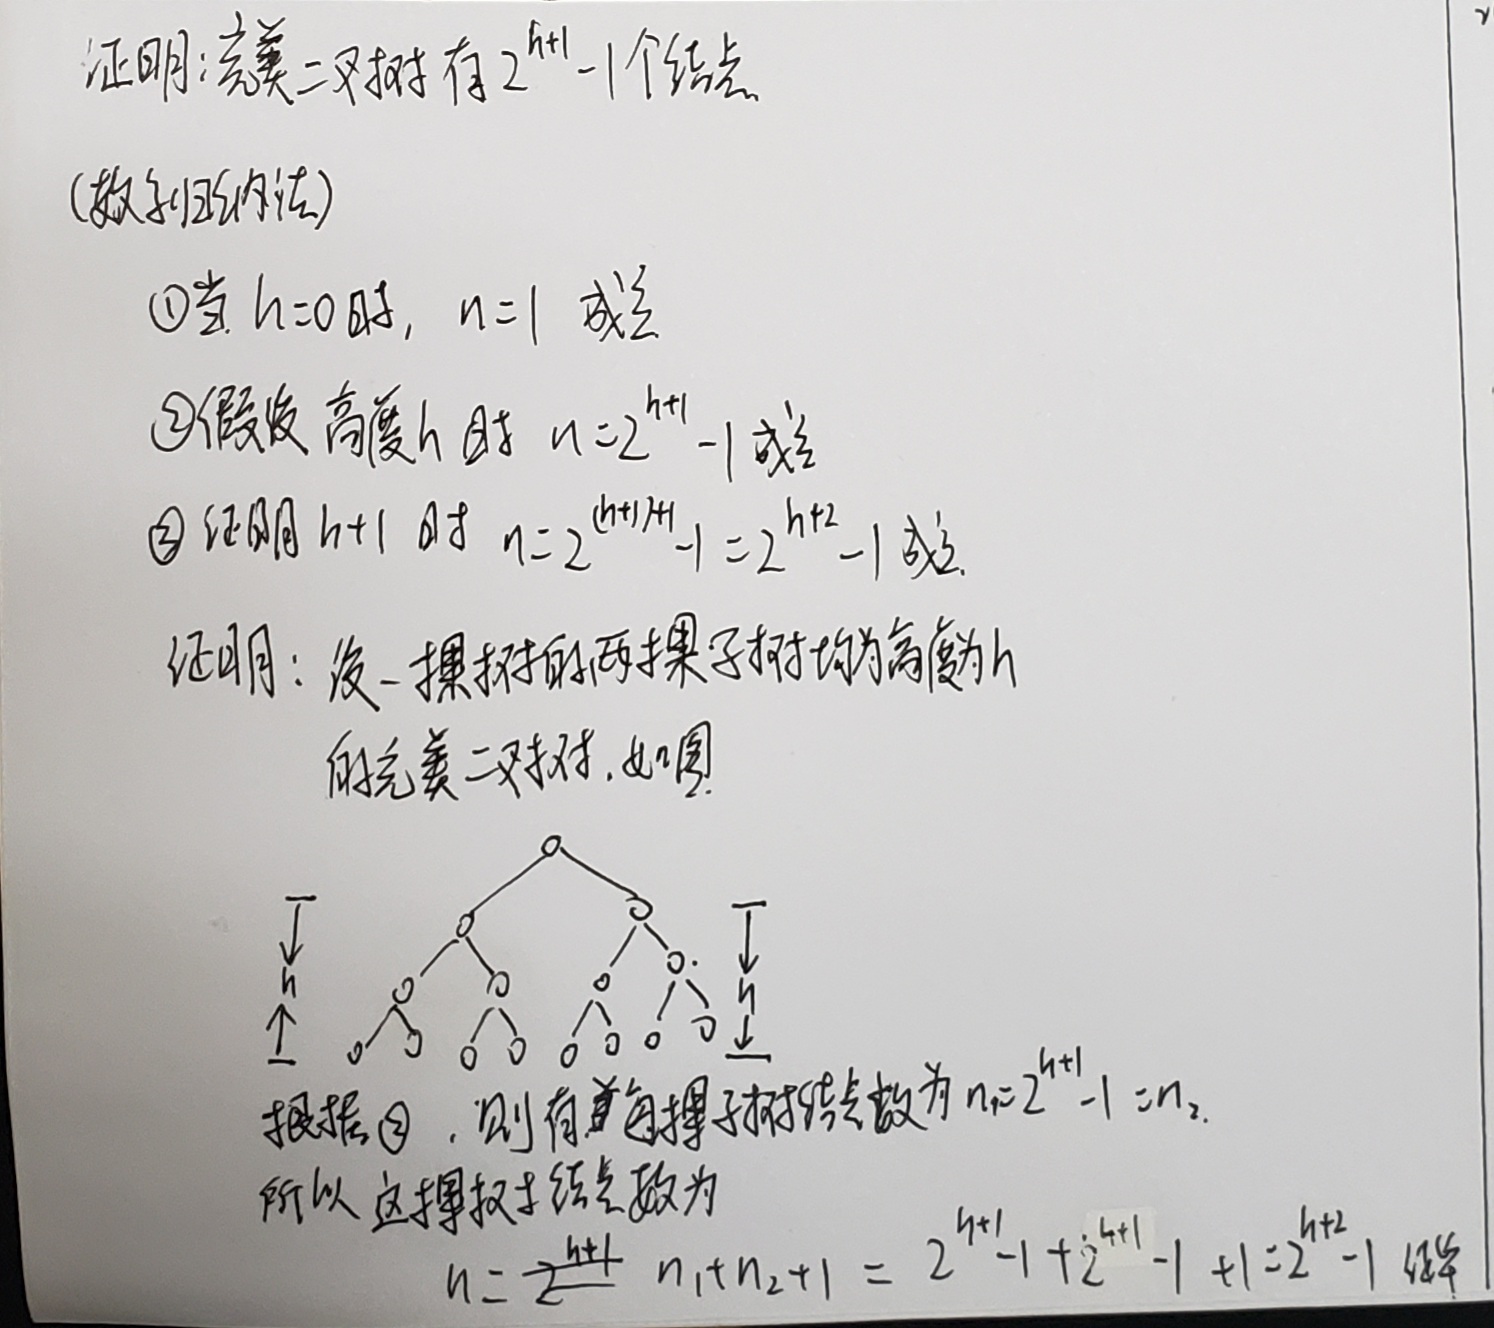 证明:完美二叉树有2^{h+1}-1个结点
(数学归纳法)
①当h=0时, n=1 成立
②假设高度h时 n=2^{h+1}-1成立
③证明h+1时 n=2^{(h+1)+1}-1=2^{h+2}-1成立.
证明: 设一棵树的两棵子树均为高度为h
的完美二叉树.如图.
h h
根据②.则有每棵子树结点数为n₁=2^{h+1}-1=n₂.
所以这棵树结点数为
n= n₁+n₂+1=2^{h+1}-1+2^{h+1}-1+1=2^{h+2}-1 证毕